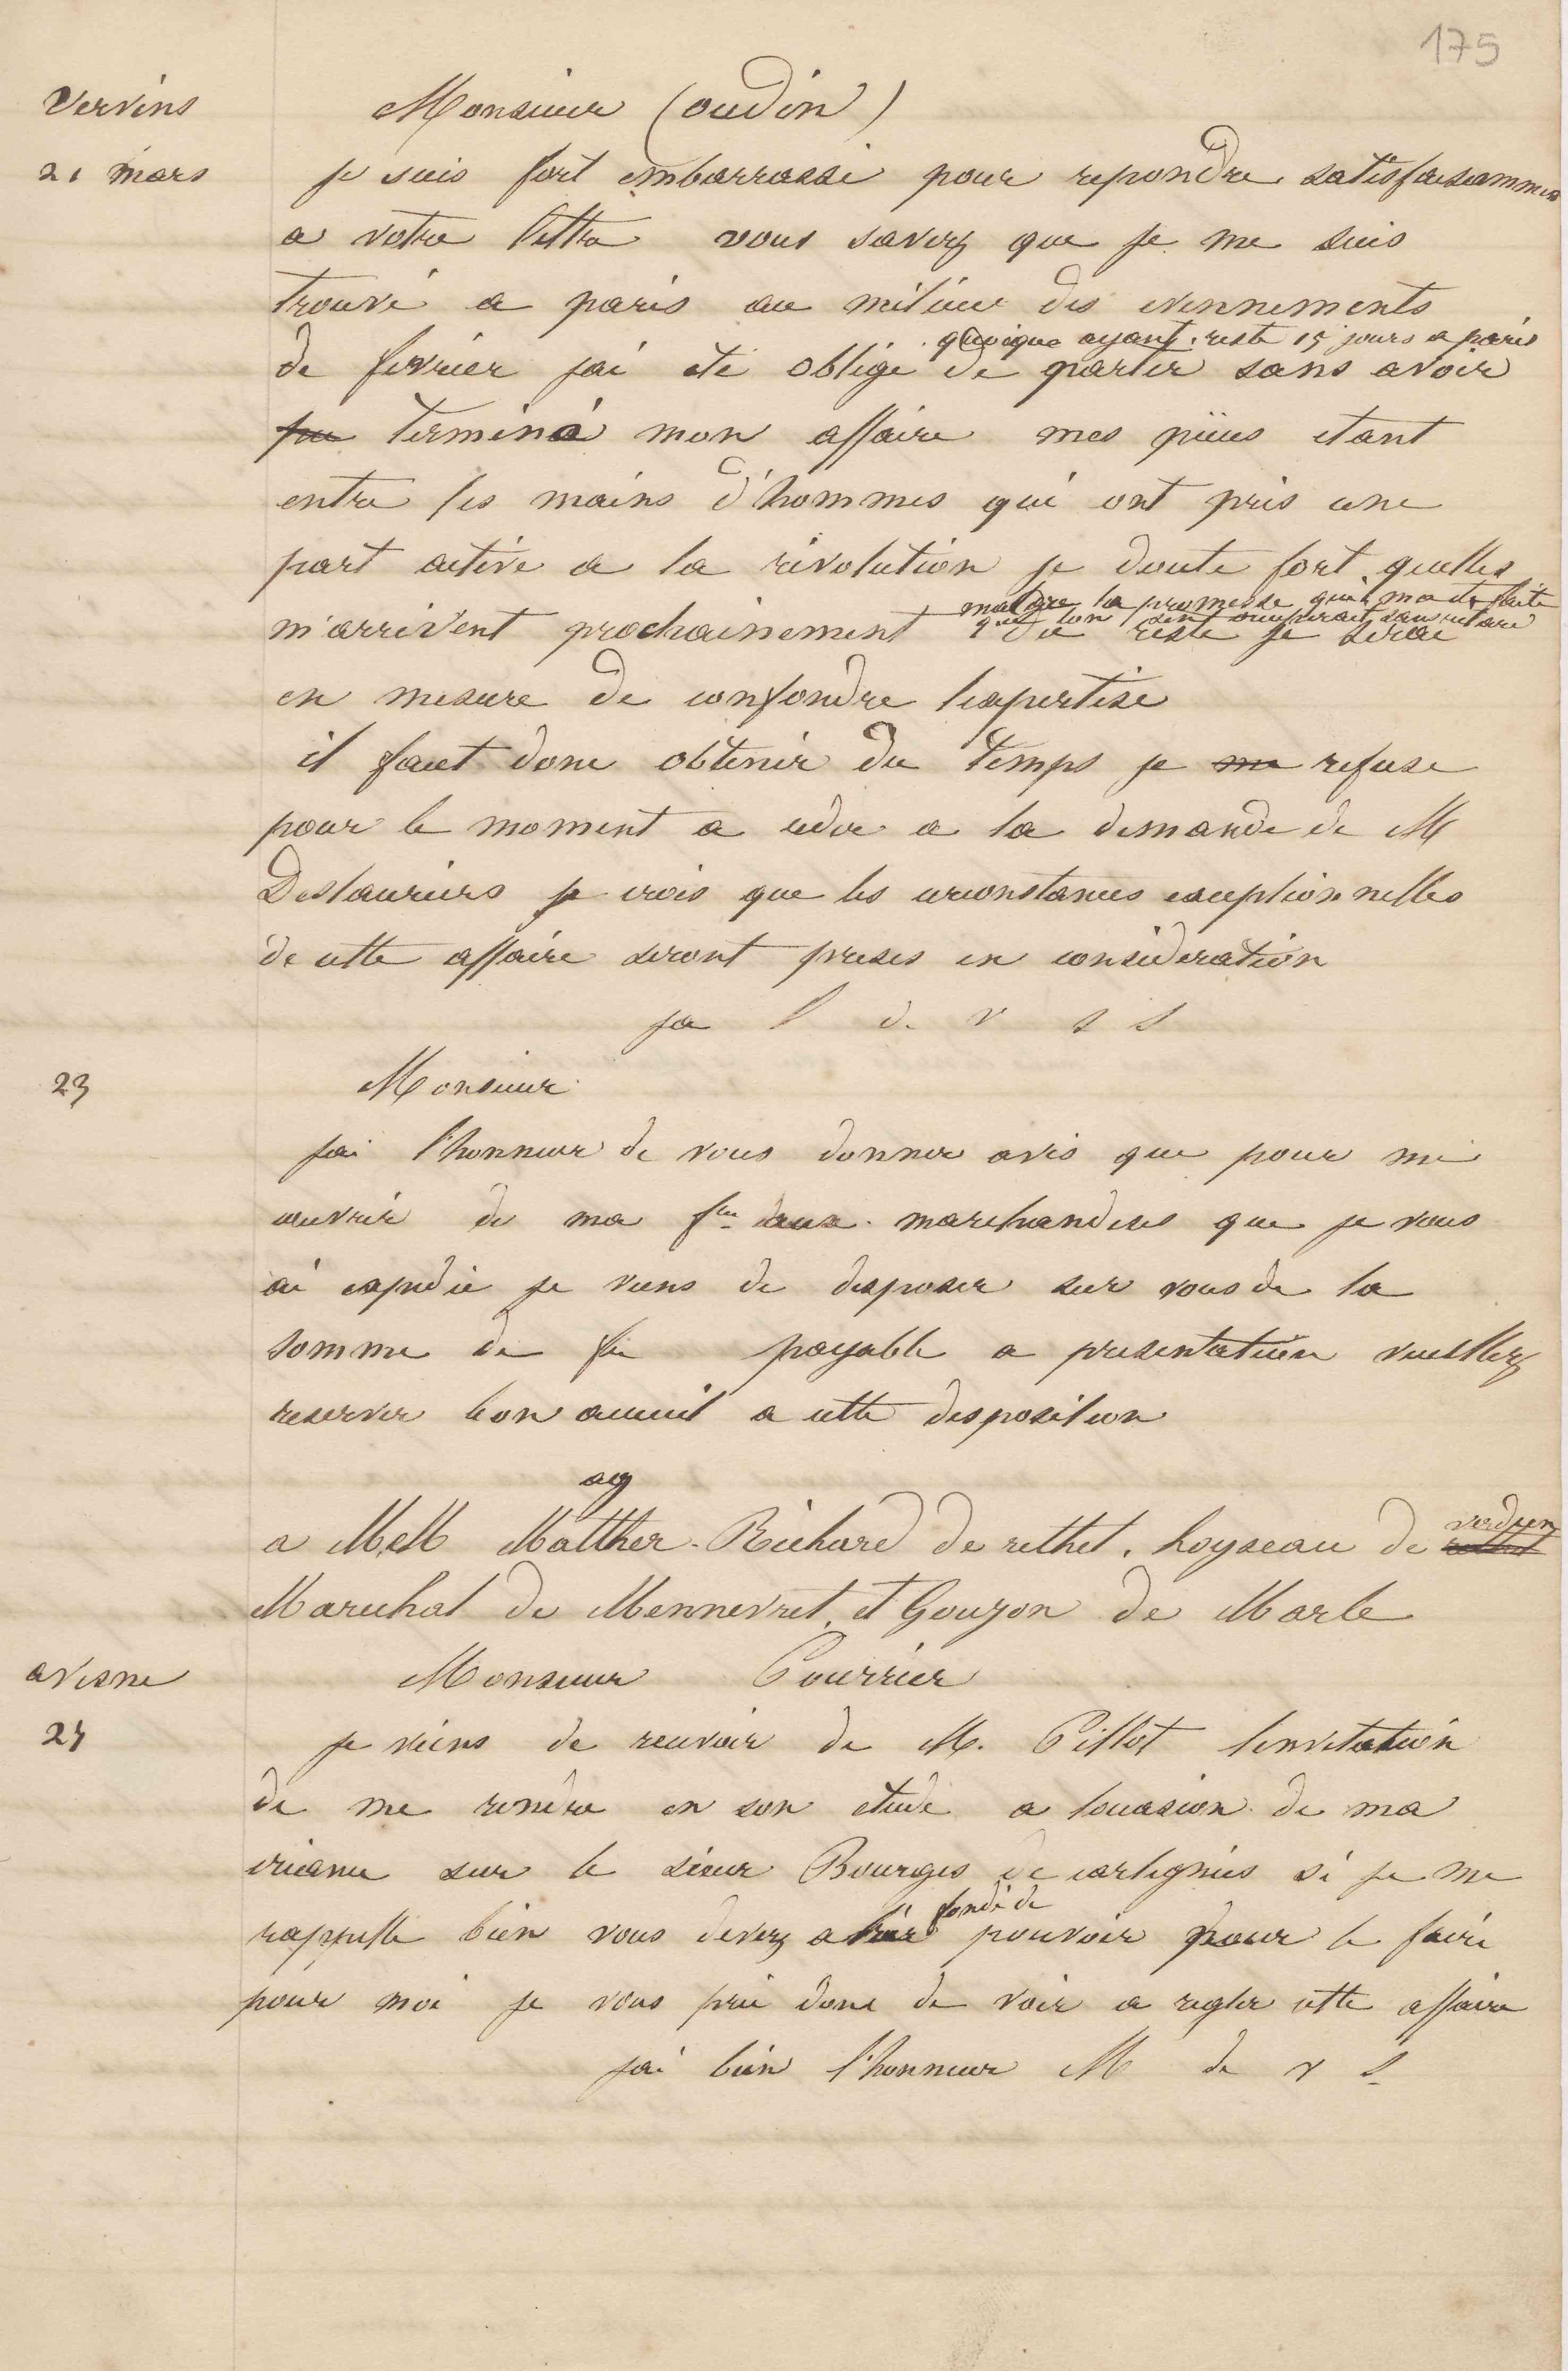 175
Vervins
Monsieur (oudin)
21 mars
je suis fort embarrassé pour repondre satisfaisamment
a votre lettre vous savez que je me suis
trouvé a paris au milieu des evennements
quoique ayant resté 15 jours a paris
de fevrier jai été obligé de partir sans avoir
pu terminé mon affaire mes pièces etant
entre les mains d'hommes qui ont pris une
part active a la révolution je doute fort quelles
malgre la promesse qui ma ete faite
que lon sen occuperait sans retard
m'arrivent prochainement du reste je serai
en mesure de confondre lexpertise
il faut donc obtenir du temps je me refuse
pour le moment a ceder a la demande de M
Deslauriers je crois que les circonstances exceptionnelles
de cette affaire seront prises en consideration
ja l d. v s s
23
Monsieur
jai l'honneur de vous donner avis que pour me
couvrir de ma fre aux marchandises que je vous
ai expedié je viens de disposer sur vous de la
somme de fr payable a presentation vueillez
reserver bon accueil a cette disposition
ag
a M.M Matther. Richard de rethel. Loyseau de rethel verdun
Marechal de Mennevret. et Gouzon de Marle
avesne
Monsieur Courrier
24
je viens de recevoir de M. Pillot linvitation
de me rendre en son etude a loccasion de ma
créance sur le sieur Bourges de cartignies si je me
fondé de
rappelle bien vous devez avoir pouvoir pour le faire
pour moi je vous prie donc de voir a regler cette affaire
jai bien l'honneur M de v s